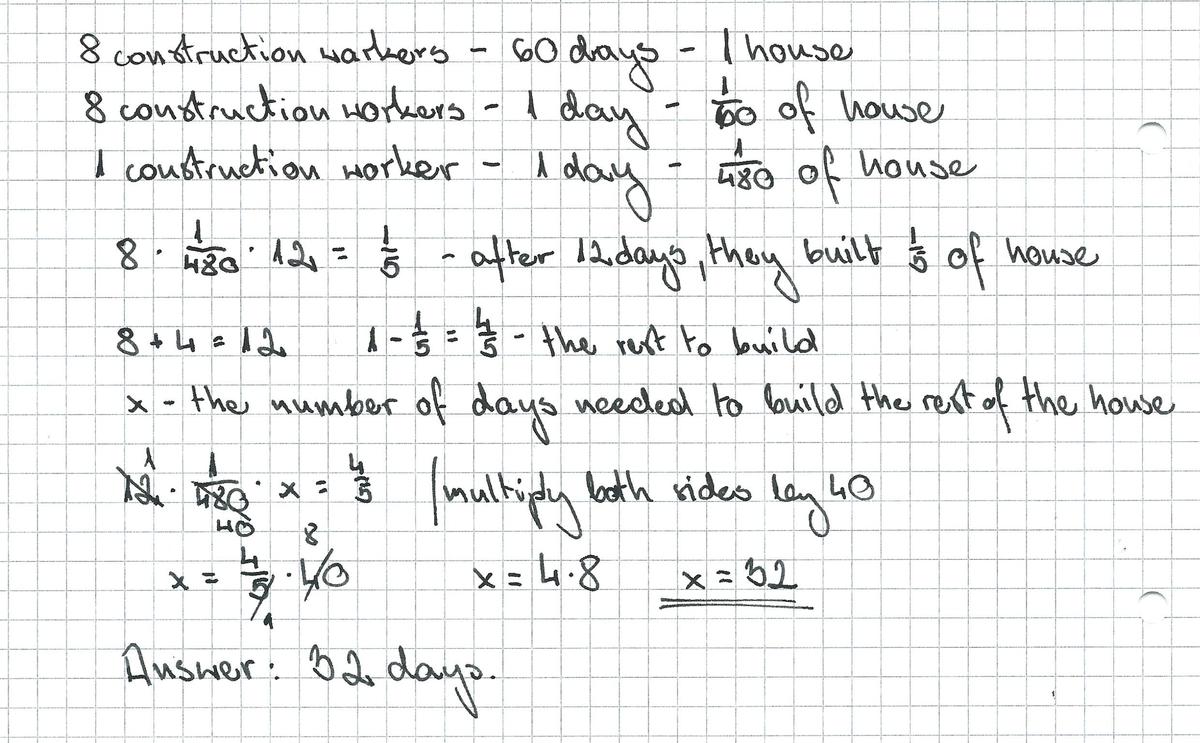 8 construction workers - 60 days - 1 house
8 construction workers - 1 day - 1/60 of house
1 construction worker - 1 day - 1/480 of house
8 · 1/480 · 12 = 1/5 - after 12 days, they built 1/5 of house
8 + 4 = 12 1 - 1/5 = 4/5 - the rest to build
x - the number of days needed to build the rest of the house
1
12 · 1/480 · x = 4/5 /multiply both sides by 40
40 8
x = 4/5 · 40 x = 4·8 x = 32
1
Answer: 32 days.